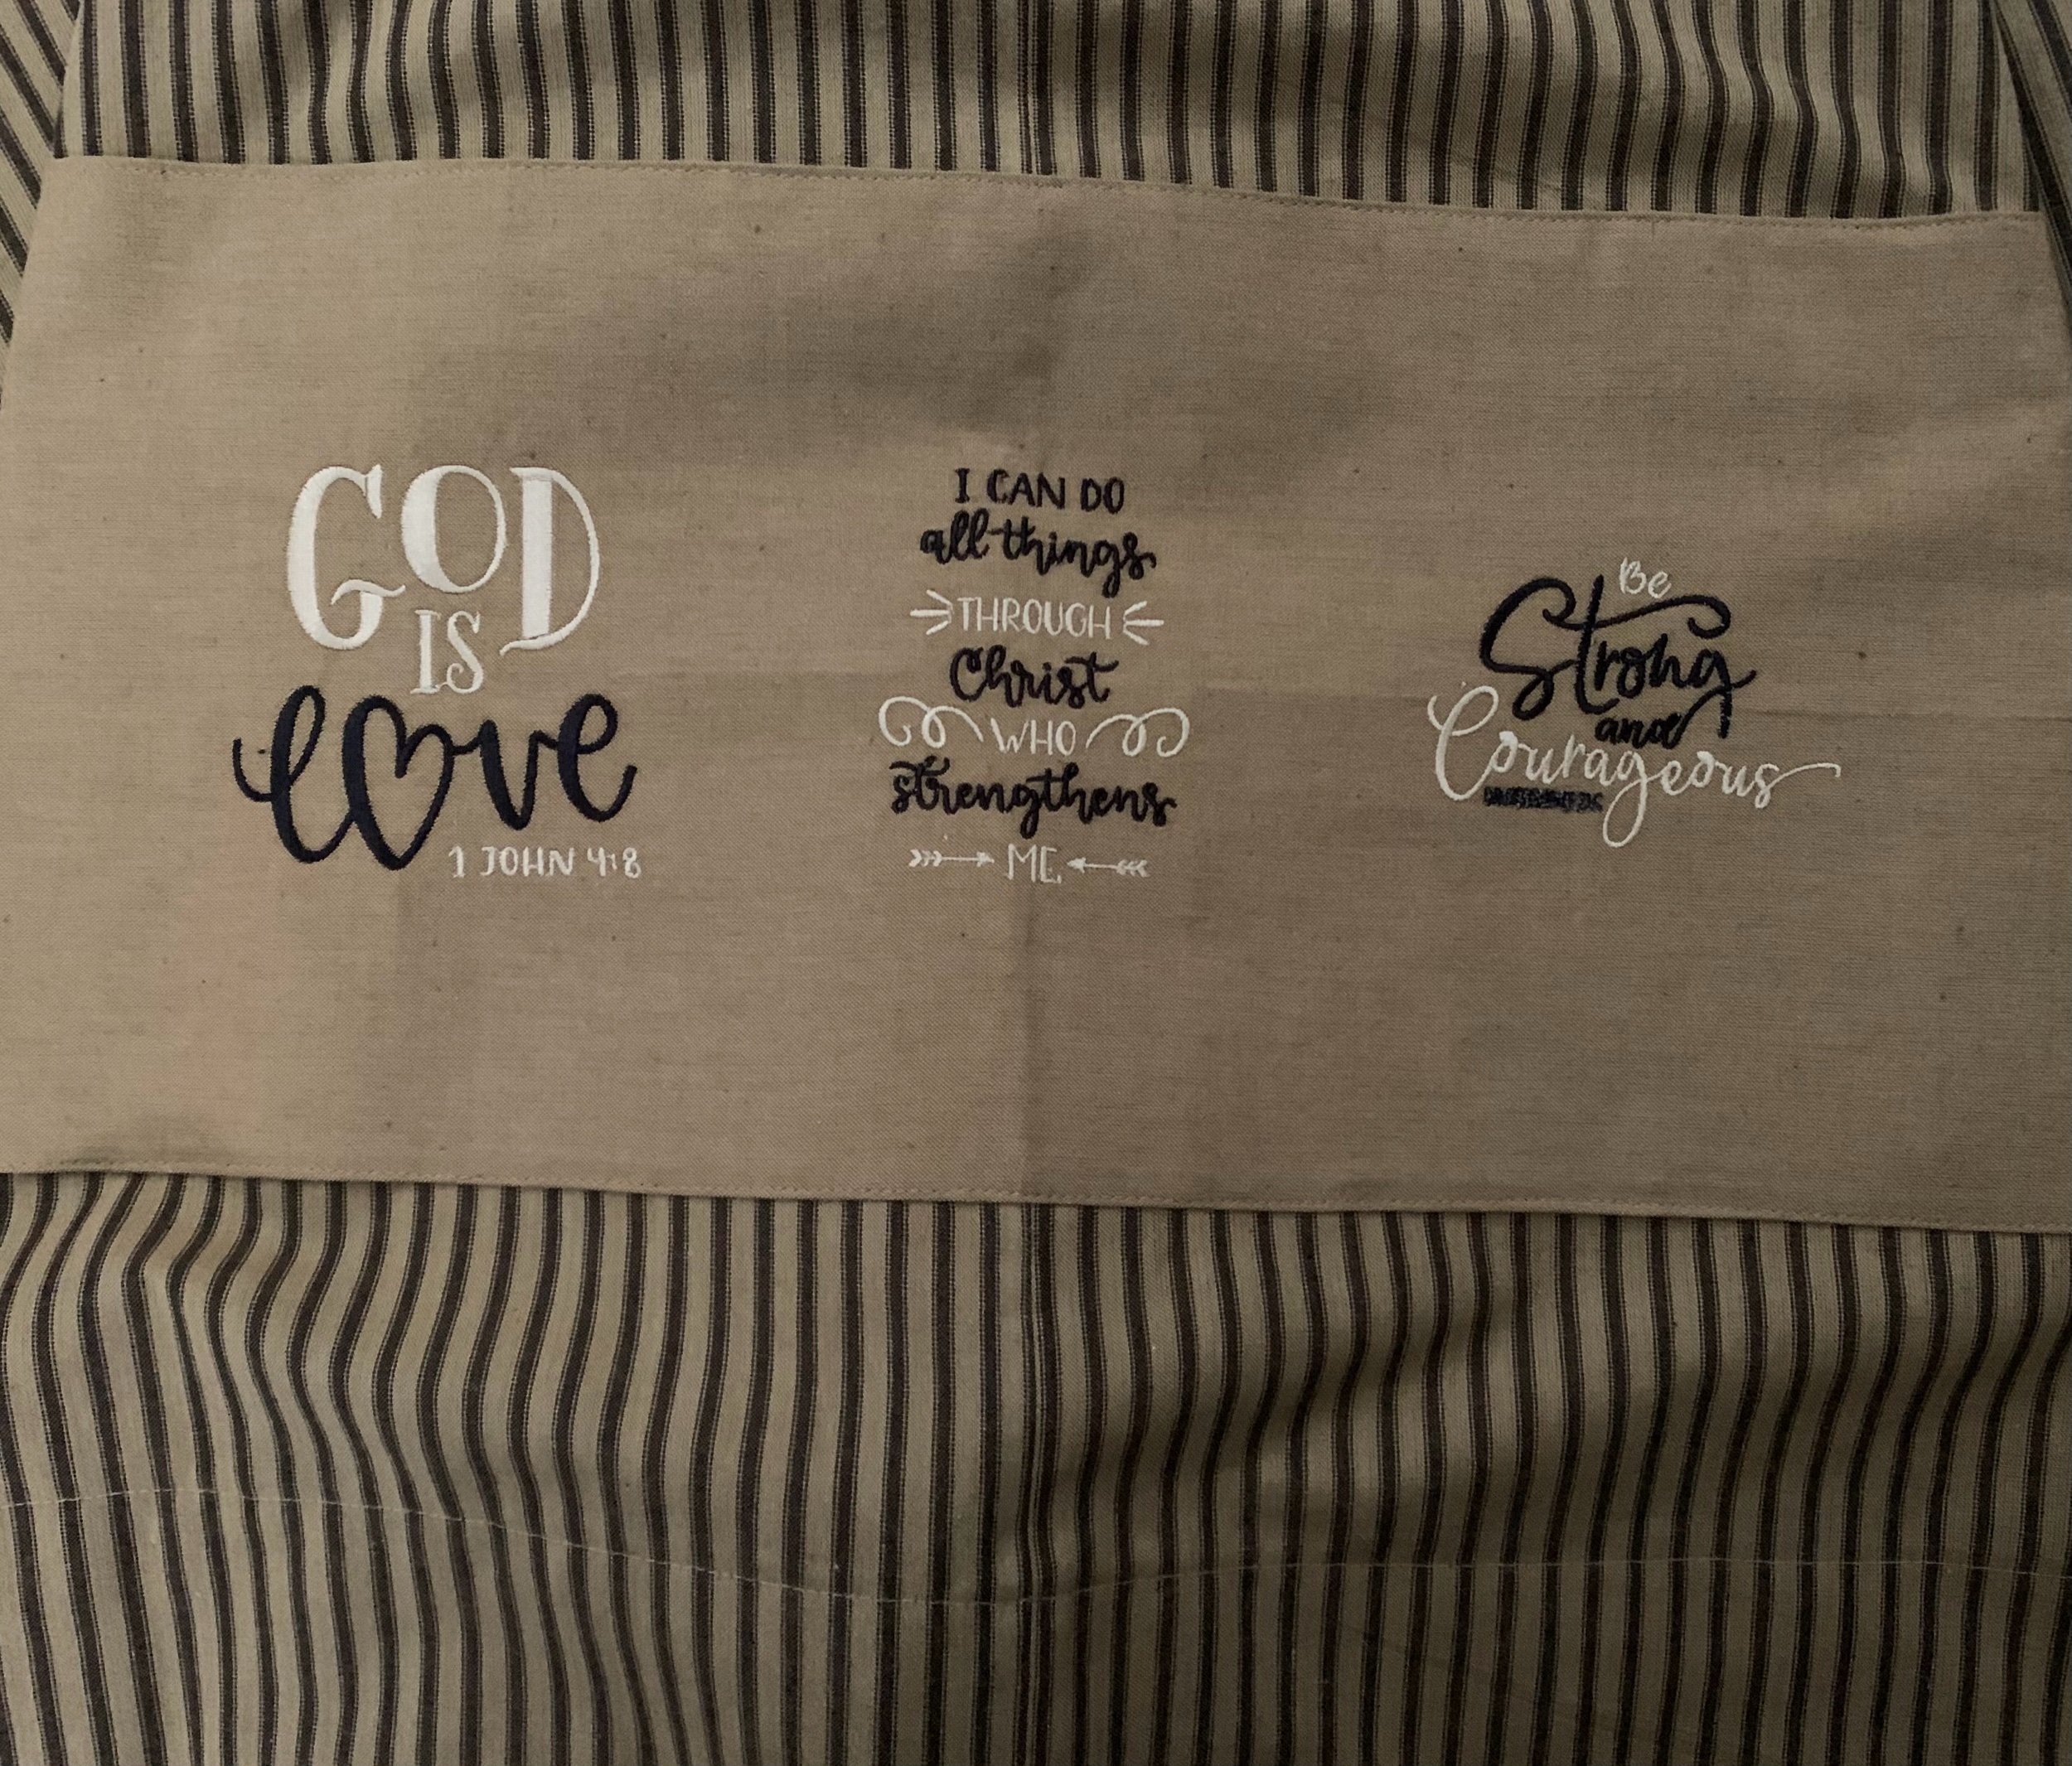 GOD
IS
love
1 JOHN 4:8
I CAN DO
all things
THROUGH
Christ
WHO
strengthens
ME
Be
Strong
and
Courageous